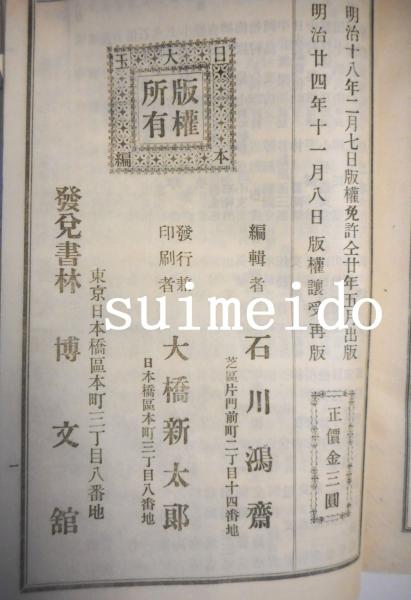 明治十八年二月七日版權免許仝廿年五月出版
明治廿四年十一月八日版權讓受再版
正價金三圓
編輯者 石川鴻齋
芝區片門前町二丁目十四番地
發行兼印刷者 大橋新太郎
日本橋區本町三丁目八番地
東京日本橋區本町三丁目八番地
發兌書林 博文舘
日本大玉編
版權所有
suimeido